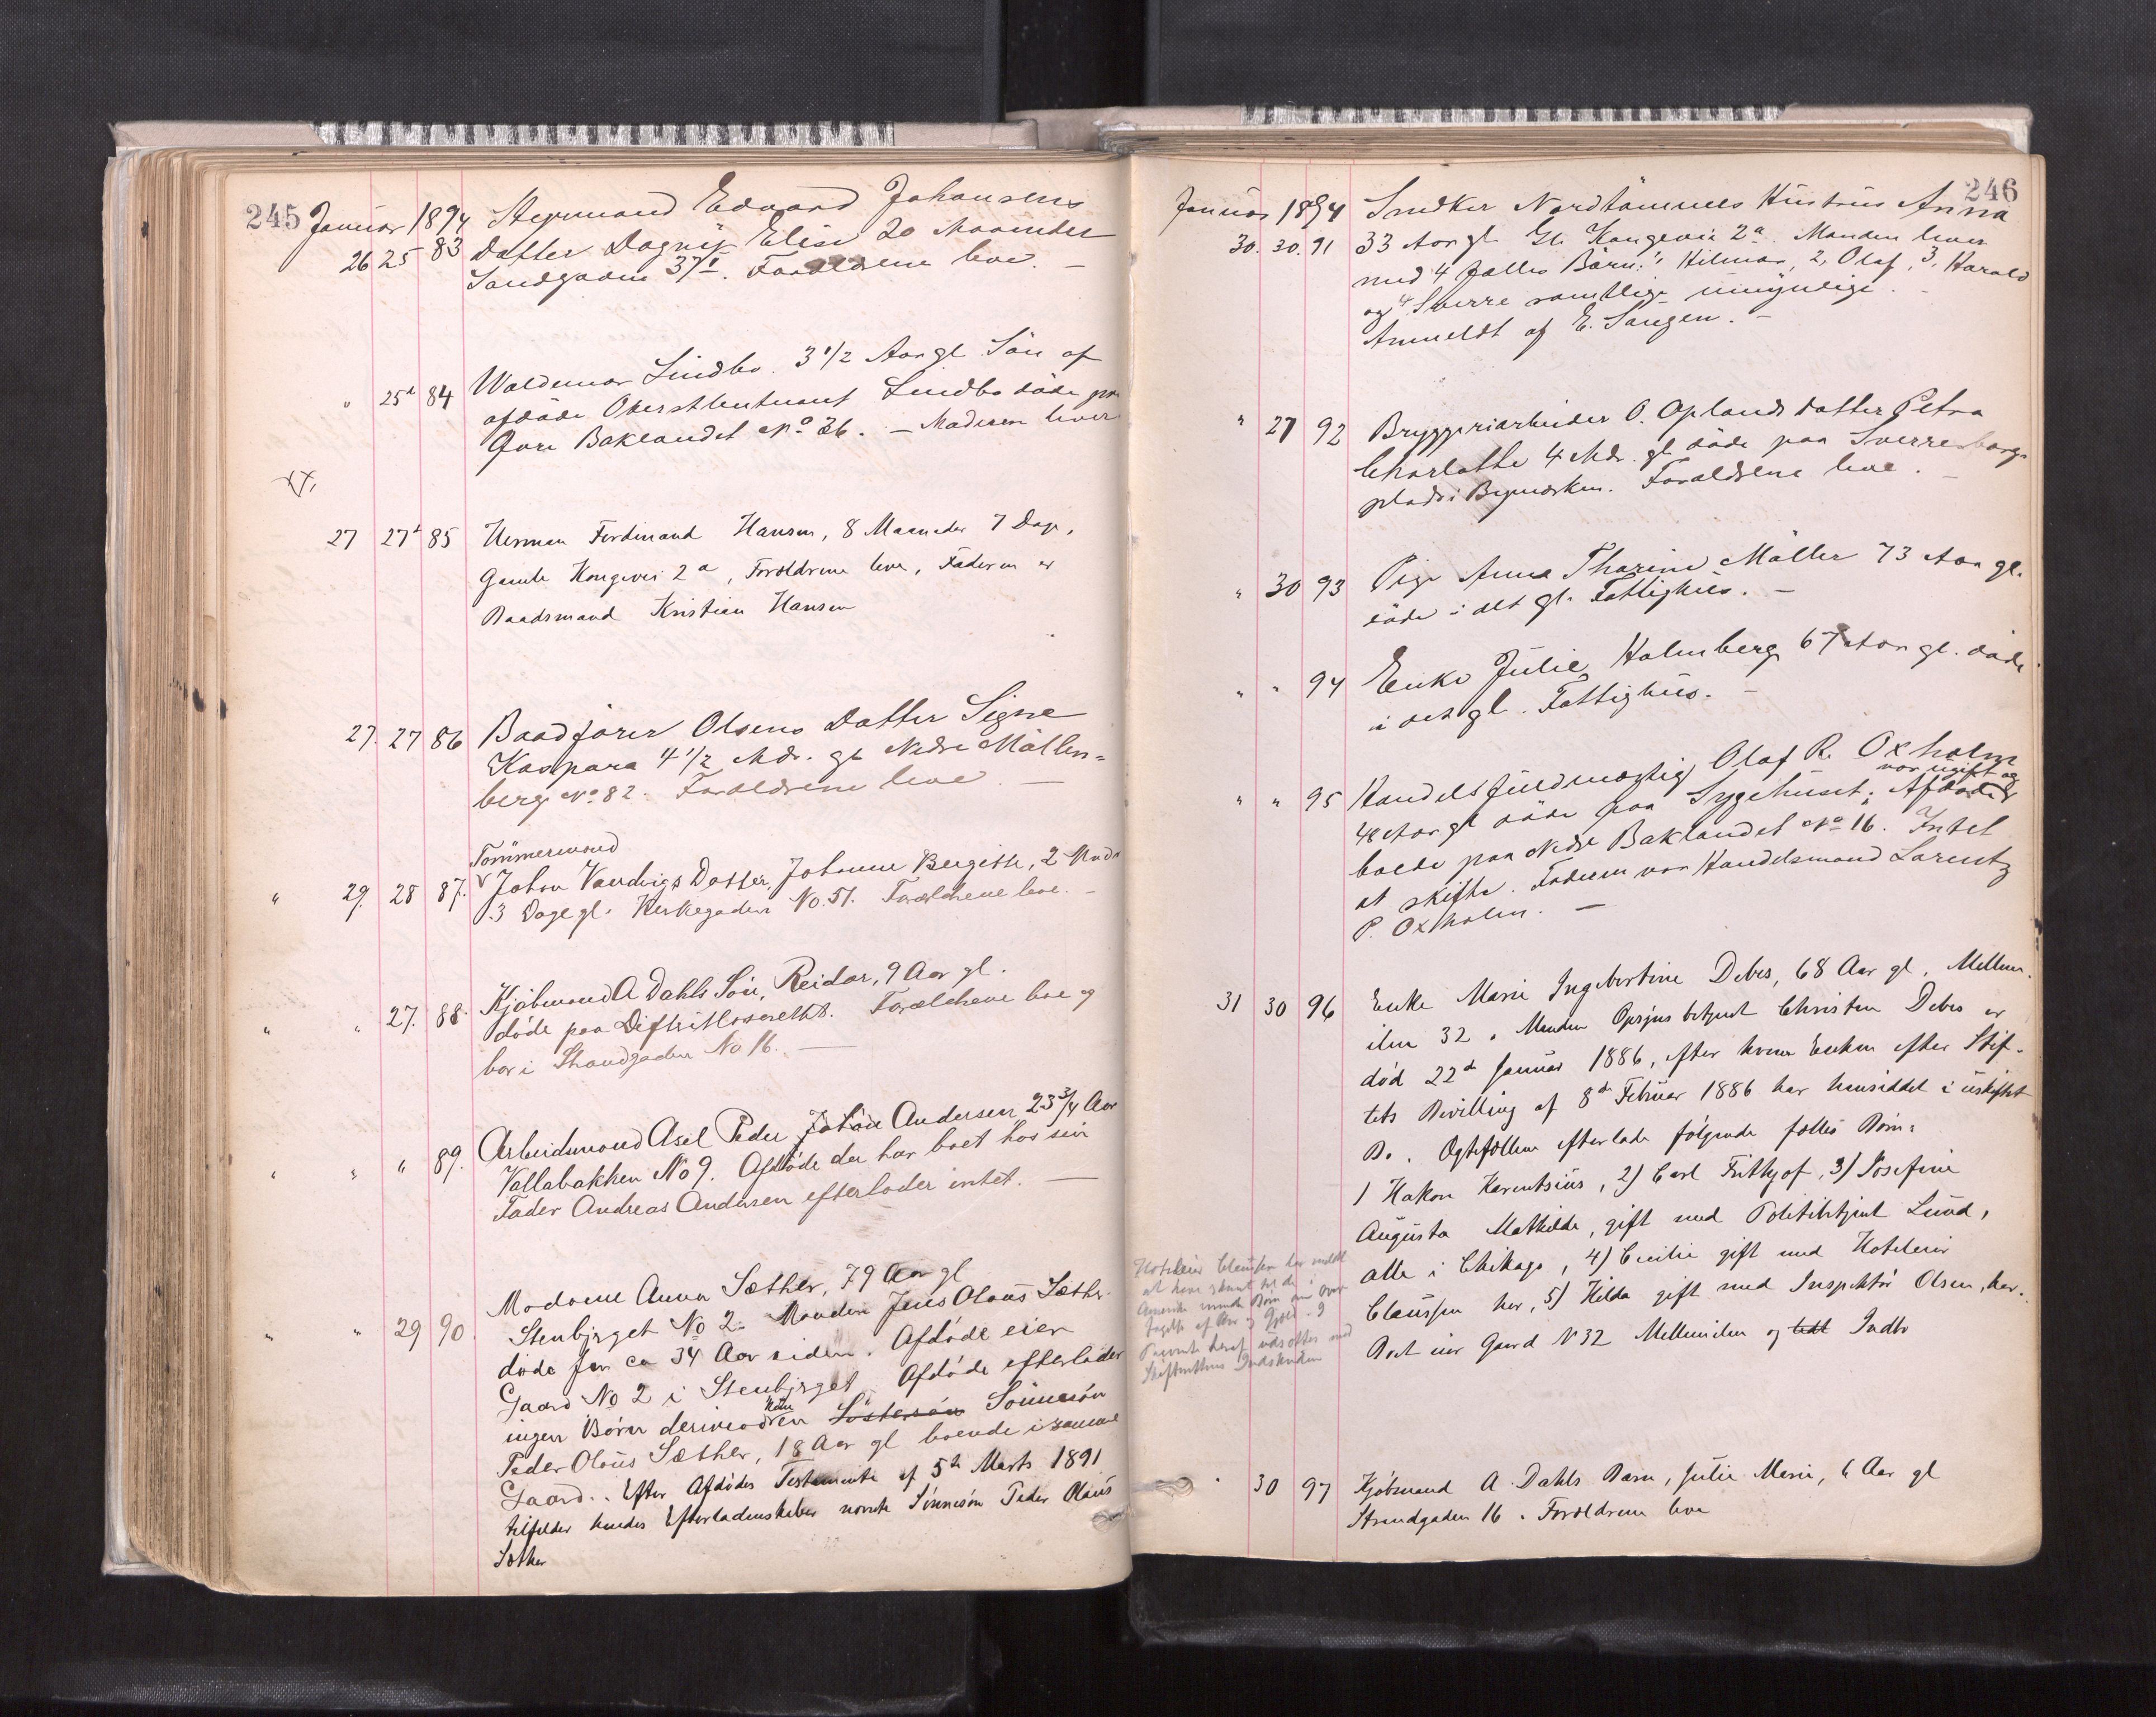 245 Januar 1894 Styrmand Edvard Johansens
26 25 83 Datter Dagny Elise 20 Maaneder
Sandgaden 37 I. Forældrene leve. —
" 25d 84 Waldemar Lindbo. 3 1/2 Aar gl. Sön af
afdöde Oberstleutnant Lindbo döde paa
Övre Baklandet No 36. — Moderen lever
27 27d 85 Herman Ferdinand Hansen, 8 Maaneder 7 Dage,
Gamle Kongevei 2a, Forældrene leve, Faderen er
Baadsmand Kristian Hansen
27. 27 86 Baadförer Olsens Datter Signe
Kaspara 4 1/2 Mdr. gl. Nedre Möllen=
berg No 82. Forældrene leve —
Tømmermand
" 29. 28 87. Johan Vandvigs Datter, Johanne Bergitte, 2 Mndr
3 Dage gl. Kirkegaden No. 51. Forældrene leve. —
" " 27. 88. Kjøbmand A Dahls Søn, Reidar, 9 Aar gl.
døde paa Difteritlasarethet. Forældrene leve og
bor i Strandgaden No 16. —
" " " 89. Arbeidsmand Axel Peder Johan Andersen 23 3/4 Aar
Vollabakken No 9. Afdøde der har boet hos sin
Fader Andreas Andersen efterlader intet. —
" " 29 90. Madame Anna Sæther, 79 Aar gl
Stenbjerget No 2. Manden Jens Olaus Sæther
døde for ca 34 Aar siden. Afdøde eier
Gaard No 2 i Stenbjerget. Afdøde efterlader
ingen Børn derimod kun en Søstersøn Sønnesøn
Peder Olaus Sæther, 18 Aar gl boende i samme
Gaard. . Efter Afdødes Testamente af 5te Marts 1891
tilfalder hendes Efterladenskaber nævnte Sønnesøn Peder Olaus
Sæther
246
Januar 1894 Snedker Nordtömmes Hustru Anna
30. 30. 91 33 Aar gl. Gl. Kongevei 2a. Manden lever
med 4 fælles Börn: 1, Hilmar, 2, Olaf, 3, Harald
og 4 Sverre samtlige umyndige. —
Anmeldt af E. Saugen. —
" 27 92 Bryggeriarbeider O. Oplands datter Petra
Charlotte 4 Mdr. gl. döde paa Sverresborgs
plads i Bymarken. Forældrene leve. —
" 30 93 Pige Anna Tharine Möller 73 Aar gl.
döde i det gl. Fattighus. —
" " 94 Enke Julie Holmberg 67 Aar gl. döde
i det gl. Fattighus. —
" " 95 Handelsfuldmægtig Olaf R. Oxholm
48 Aar gl. döde paa Sygehuset; Afdöde var ugift og
boede paa Nedre Baklandet No 16. Intet
at skifte. Faderen var Handelsmand Larentz
P. Oxholm. —
31 30 96 Enke Marie Ingebertine Debes, 68 Aar gl, Mellem
ilen 32. Manden Opsynsbetjent Christen Debes er
død 22de Januar 1886, efter hvem Enken efter Stif=
tets Bevilling af 8de Februar 1886 har hensiddet i uskiftet
Bo. Ægtefollene efterlade følgende fælles Børn:
1/ Hakon Karentsius, 2) Carl Frithjof, 3) Josefine
Augusta Mathilde, gift med Politibetjent Lund,
alle i Chikago, 4) Cecilie gift med Hoteleier
Claussen her, 5) Hilda gift med Inspektør Olsen, her.
Boet eier Gaard N 32 Mellemilen og lidt Indbo
Hoteleier Claussen har meldt
at have skrevet til de i
Amerika værende Børn om Over
tagelse af Arv og Gjæld. I
Paavente heraf udsættes med
Skifterettens Indskriden
" 30 97 Kjøbmand A. Dahls Barn, Julie Marie, 6 Aar gl
Strandgaden 16. Forældrene leve